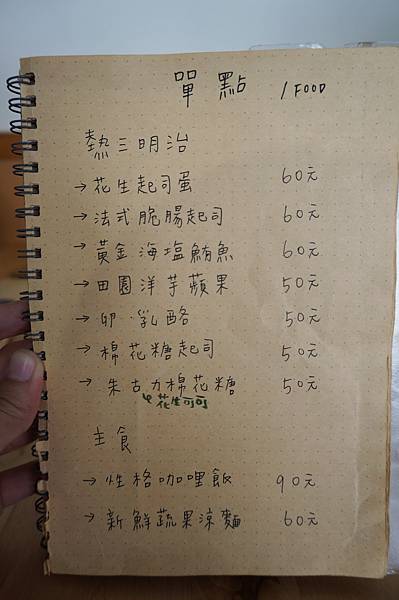 單點 / FOOD
熱三明治
→ 花生起司蛋 60元
→ 法式脆腸起司 60元
→ 黃金海塩鮪魚 60元
→ 田園洋芋蘋果 50元
→ 卵·乳酪 50元
→ 棉花糖起司 50元
→ 朱古力棉花糖 50元
↳花生可可
主食
→ 性格咖哩飯 90元
→ 新鮮蔬果涼麵 60元